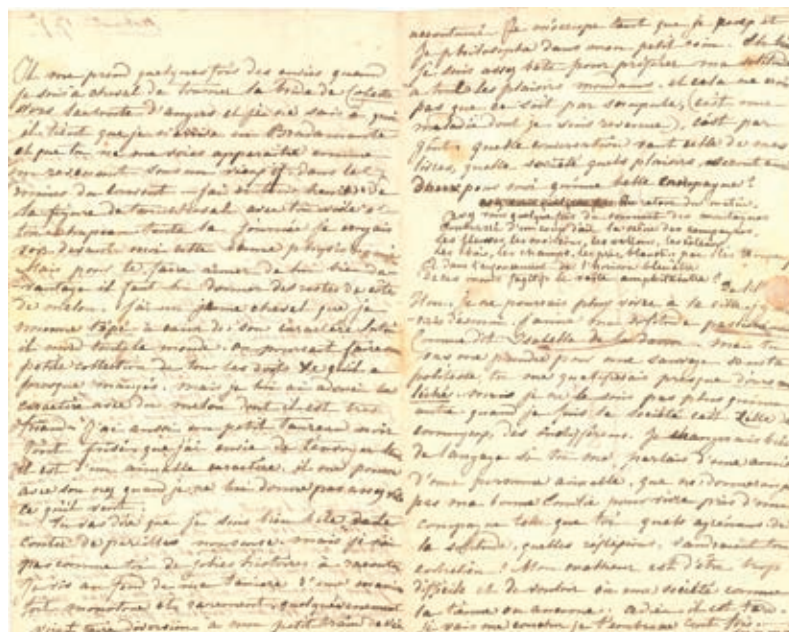 Il me prend quelques fois des envies quand
je suis à cheval de tourner la bride de Colette
vers la route d'angers et je ne sais à quoi
il tient que je
et que tu ne me voies apparaître comme
un revenant sous un vieux if dans les
ruines du couvent j'ai
la figure de ton cheval avec ton voile et
ton chapeau toute la journée je croyais
voir devant moi cette bonne physionomie
Mais pour te faire aimer de lui bien da
vantage il faut lui donner des restes de côte
de melon. J'ai un jeune cheval que je
nomme à cause de son caractère
il mord tout le monde. On pourrait faire une
petite collection de tous les doigts qu'il a
presque mangés. mais je lui ai adouci le
caractère avec du melon dont il est très
friand J'ai aussi un petit taureau noir
tout frisé que j'ai envie de t'envoyer
Il est d'un aimable caractère. il me pousse
avec son nez quand je ne lui donne pas assez vite
ce qu'il veut.
Tu vas dire que je suis bien bête de te
conter de pareilles nonsense. mais je n'ai
pas comme toi de jolies histoires à raconter
Je vis au fond de ma tanière d'une manière
fort monotone et rarement quelque événement
vient faire diversion à mon petit train de vie
accoutumé Je m'occupe tant que je puis et
Je philosophe dans mon petit coin.
Je suis assez bête pour préférer ma solitude
à tous les plaisirs mondains. et cela ne crois
pas que ce soit par scrupule, (c'est une
maladie dont je suis revenue). C'est par
goût. quelle conversation vaut celle de mes
livres, quelle société quels plaisirs,
pour moi qu'une belle campagne?
au retour du matin,
vu quelque fois du sommet des montagnes
d'un coup d'œil la scène des campagnes,
Les fleuves, les moissons, les vallons, les coteaux,
Les bois, les champs, les prés blanchis par les troupeaux
Et dans l'enfoncement de l'horizon bleuâtre
De ces monts le vaste amphithéâtre?
De lil
Non, je ne pourrais plus vivre à la ville, je
J'aime ma solitude
Comme dit Isabelle de mais tu
vas me prendre pour une sauvage sans
politesse, tu me qualifierais presque d'ours mal
léché. mais je ne le suis pas plus qu'une
autre quand je fuis la société c'est celle des
ennuyeux, des indifférens. Je changerais bien
de langage si tu me parlais d'une amie
d'une personne aimable, que ne donnerais je
pas ma bonne pour vivre près d'une
compagne telle que toi quels agrémens de
la solitude, quelles réflexions, vaudraient ton
entretien! Mon malheur est d'être trop
difficile et de vouloir ou une société comme
la tienne ou aucune. adieu il est tard.
Je vais me coucher je t'embrasse cent fois.